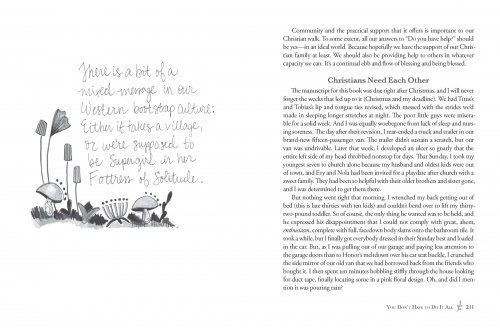 There is a bit of a
mixed-message in our
Western bootstrap culture:
Either it takes a village,
or we're supposed to
be Supergirl in her
Fortress of Solitude.
Community and the practical support that it offers is important to our
Christian walk. To some extent, all our answers to "Do you have help?" should
be yes—in an ideal world. Because hopefully we have the support of our Chris-
tian family at least. We should also be providing help to others in whatever
capacity we can. It's a continual ebb and flow of blessing and being blessed.
Christians Need Each Other
The manuscript for this book was due right after Christmas, and I will never
forget the weeks that led up to it (Christmas and my deadline). We had Titus's
and Tobias's lip and tongue ties revised, which messed with the strides we'd
made in sleeping longer stretches at night. The poor little guys were misera-
ble for a solid week. And I was equally woebegone from lack of sleep and nurs-
ing soreness. The day after their revision, I rear-ended a truck and trailer in our
brand-new fifteen-passenger van. The trailer didn't sustain a scratch, but our
van was undrivable. Later that week, I developed an ulcer so gnarly that the
entire left side of my head throbbed nonstop for days. That Sunday, I took my
youngest seven to church alone because my husband and oldest kids were out
of town, and Evy and Nola had been invited for a playdate after church with a
sweet family. They had been so helpful with their older brothers and sister gone,
and I was determined to get them there.
But nothing went right that morning. I wrenched my back getting out of
bed (this is late thirties with ten kids) and couldn't bend over to lift my thirty-
two-pound toddler. So of course, the only thing he wanted was to be held, and
he expressed his disappointment that I could not comply with great, ahem,
enthusiasm, complete with full, facedown body slams onto the bathroom tile. It
took a while, but I finally got everybody dressed in their Sunday best and loaded
in the car. But, as I was pulling out of our garage and paying less attention to
the garage doors than to Honor's meltdown over his car seat buckle, I crunched
the side mirror of our old van that we had borrowed back from the friends who
bought it. I then spent ten minutes hobbling stiffly through the house looking
for duct tape, finally locating some in a pink floral design. Oh, and did I men-
tion it was pouring rain?
You Don't Have to Do It All 211